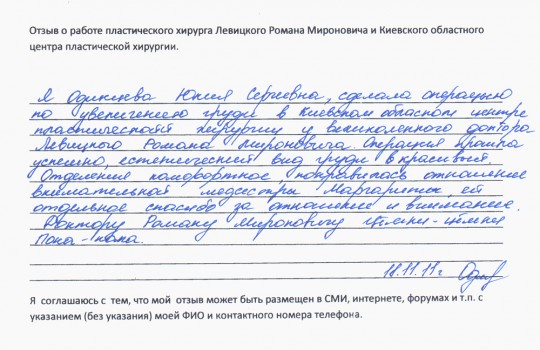 Отзыв о работе пластического хирурга Левицкого Романа Мироновича и Киевского областного
центра пластической хирургии.
Я Одинцева Юлия Сергеевна, сделала операцию
по увеличению груди в Киевском обласном центре
пластической хирургии у великолепного доктора
Левицкого Романа Мироновича. Операция прошла
успешно, естетический вид груди в красивый.
Отделения комфортное понравилась отношение
внимательной медсестры Маргариты, ей
отдельное спасибо за отношение и внимание.
Доктору Роману Мироновичу чмки-чмки
пока-пока.
18.11.11г
Я соглашаюсь с тем, что мой отзыв может быть размещен в СМИ, интернете, форумах и т.п. с
указанием (без указания) моей ФИО и контактного номера телефона.